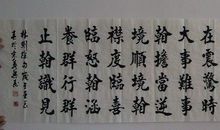 大事難事
看擔當逆
境順境看
襟度臨喜
臨怒看涵
養群行群
止看識見